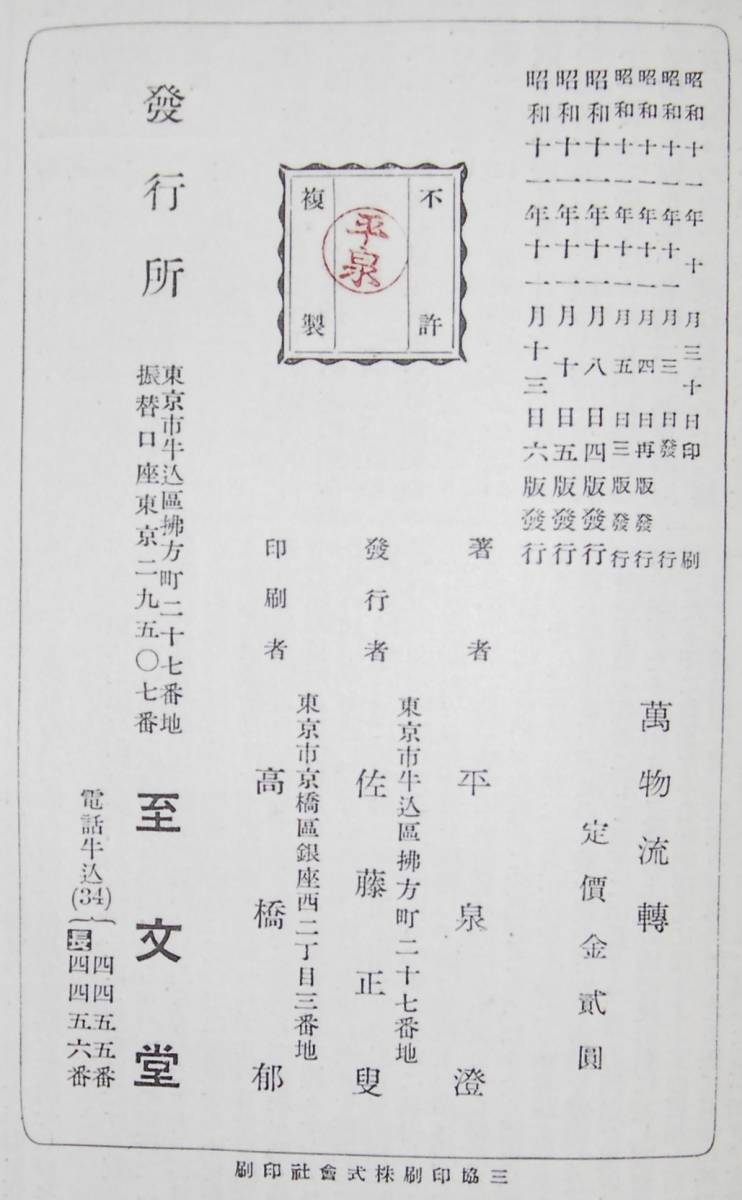 昭和十一年十月三十日印刷
昭和十一年十一月三日發行
昭和十一年十一月四日再版發行
昭和十一年十一月五日三版發行
昭和十一年十一月八日四版發行
昭和十一年十一月十日五版發行
昭和十一年十一月十三日六版發行
萬物流轉
定價金貳圓
不許
複製
平泉
著者 平泉澄
東京市牛込區拂方町二十七番地
發行者 佐藤正叟
東京市京橋區銀座西二丁目三番地
印刷者 高橋郁
發行所
東京市牛込區拂方町二十七番地
振替口座東京二九五〇七番
至文堂
電話牛込(34)
四四五五番
長四四五六番
三協印刷株式會社印刷